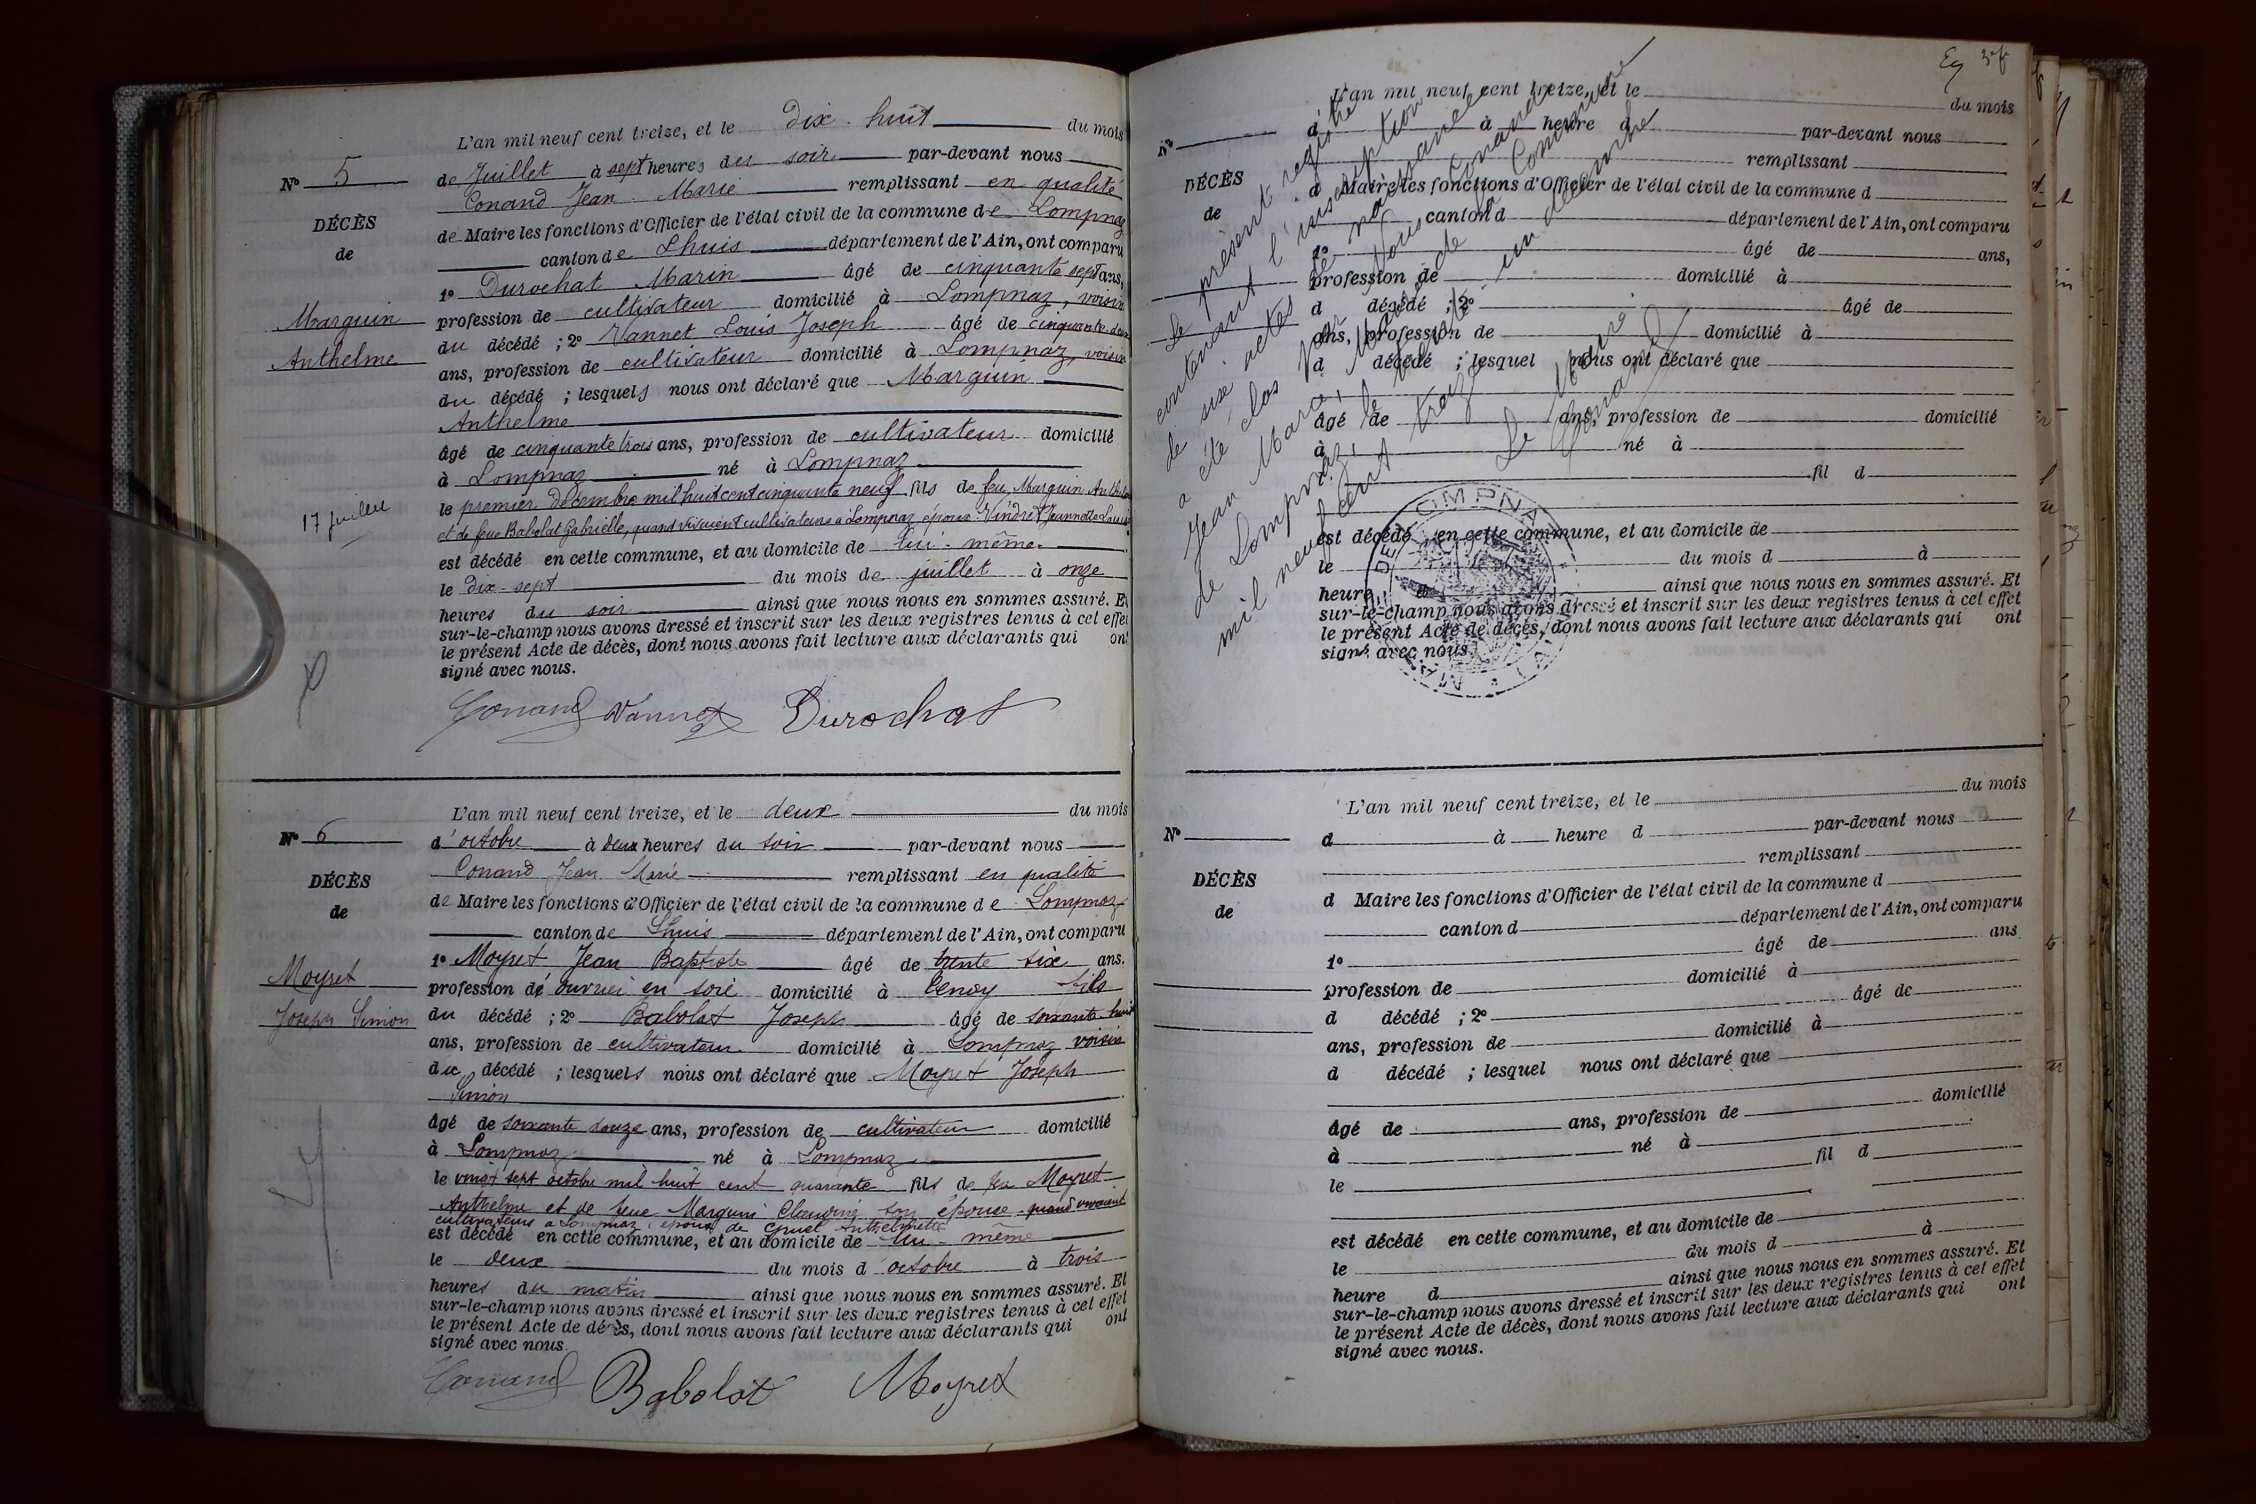 L'an mil neuf cent treize, et le dix-huit du mois
N° 5
de Juillet à sept heures du soir par-devant nous
Conand Jean-Marie remplissant en qualité
DÉCÈS
de
de Maire les fonctions d'Officier de l'état civil de la commune de Lompnaz
canton de Lhuis département de l'Ain, ont comparu
1° Durochat Marin âgé de cinquante sept ans,
Marguin
Anthelme
profession de cultivateur domicilié à Lompnaz, voisin
du décédé ; 2° Vannet Louis Joseph âgé de cinquante deux
ans, profession de cultivateur domicilié à Lompnaz, voisin
du décédé ; lesquels nous ont déclaré que Marguin
Anthelme
âgé de cinquante trois ans, profession de cultivateur domicilié
à Lompnaz né à Lompnaz
17 juillet
le premier décembre mil huit cent cinquante neuf fils de feu Marguin Anthelme
et de feue Babolat Gabrielle, quand vivaient cultivateurs à Lompnaz, époux Vindret Jeannette Louise
est décédé en cette commune, et au domicile de lui-même
le dix-sept du mois de juillet à onze
heures du soir ainsi que nous nous en sommes assuré. Et
sur-le-champ nous avons dressé et inscrit sur les deux registres tenus à cet effet
le présent Acte de décès, dont nous avons fait lecture aux déclarants qui ont
signé avec nous.
Conand Vannet Durochat
L'an mil neuf cent treize, et le deux du mois
N° 6
d'octobre à deux heures du soir par-devant nous
Conand Jean Marie remplissant en qualité
DÉCÈS
de
de Maire les fonctions d'Officier de l'état civil de la commune de Lompnaz
canton de Lhuis département de l'Ain, ont comparu
Moyret
Joseph Simon
1° Moyret Jean Baptiste âgé de trente six ans.
profession d'ouvrier en soie domicilié à Cenoy fils
du décédé ; 2° Babolat Joseph âgé de soixante huit
ans, profession de cultivateur domicilié à Lompnaz voisin
du décédé ; lesquels nous ont déclaré que Moyret Joseph
Simon
âgé de soixante douze ans, profession de cultivateur domicilié
à Lompnaz né à Lompnaz
le vingt sept octobre mil huit cent quarante fils de feu Moyret
Anthelme et de feue Marguin Claudine son épouse quand vivaient
cultivateurs à Lompnaz, époux de Gruet Anthelmette
est décédé en cette commune, et au domicile de lui-même
le deux du mois d'octobre à trois
heures du matin ainsi que nous nous en sommes assuré. Et
sur-le-champ nous avons dressé et inscrit sur les deux registres tenus à cet effet
le présent Acte de décès, dont nous avons fait lecture aux déclarants qui ont
signé avec nous.
Conand Babolat Moyret
L'an mil neuf cent treize, et le du mois
N° d à heure d par-devant nous
remplissant
DÉCÈS
de
d Maire les fonctions d'Officier de l'état civil de la commune d
canton d département de l'Ain, ont comparu
1° âgé de ans,
profession de domicilié à
d décédé ; 2° âgé de
ans, profession de domicilié à
d décédé ; lesquel nous ont déclaré que
âgé de ans, profession de domicilié
à né à
fil d
est décédé en cette commune, et au domicile de
le du mois d à
heure d ainsi que nous nous en sommes assuré. Et
sur-le-champ nous avons dressé et inscrit sur les deux registres tenus à cet effet
le présent Acte de décès, dont nous avons fait lecture aux déclarants qui ont
signé avec nous.
Le présent registre
contenant l'inscription
de six actes de
a été clos par Nous Conand
Jean Marie, Maire de la Commune
de Lompnaz, le trente-un décembre
mil neuf cent treize
Le Maire
Conand
L'an mil neuf cent treize, et le du mois
N° d à heure d par-devant nous
remplissant
DÉCÈS
de
d Maire les fonctions d'Officier de l'état civil de la commune d
canton d département de l'Ain, ont comparu
1° âgé de ans
profession de domicilié à
d décédé ; 2° âgé de
ans, profession de domicilié à
d décédé ; lesquel nous ont déclaré que
âgé de ans, profession de domicilié
à né à
le fil d
est décédé en cette commune, et au domicile de
le du mois d à
heure d ainsi que nous nous en sommes assuré. Et
sur-le-champ nous avons dressé et inscrit sur les deux registres tenus à cet effet
le présent Acte de décès, dont nous avons fait lecture aux déclarants qui ont
signé avec nous.